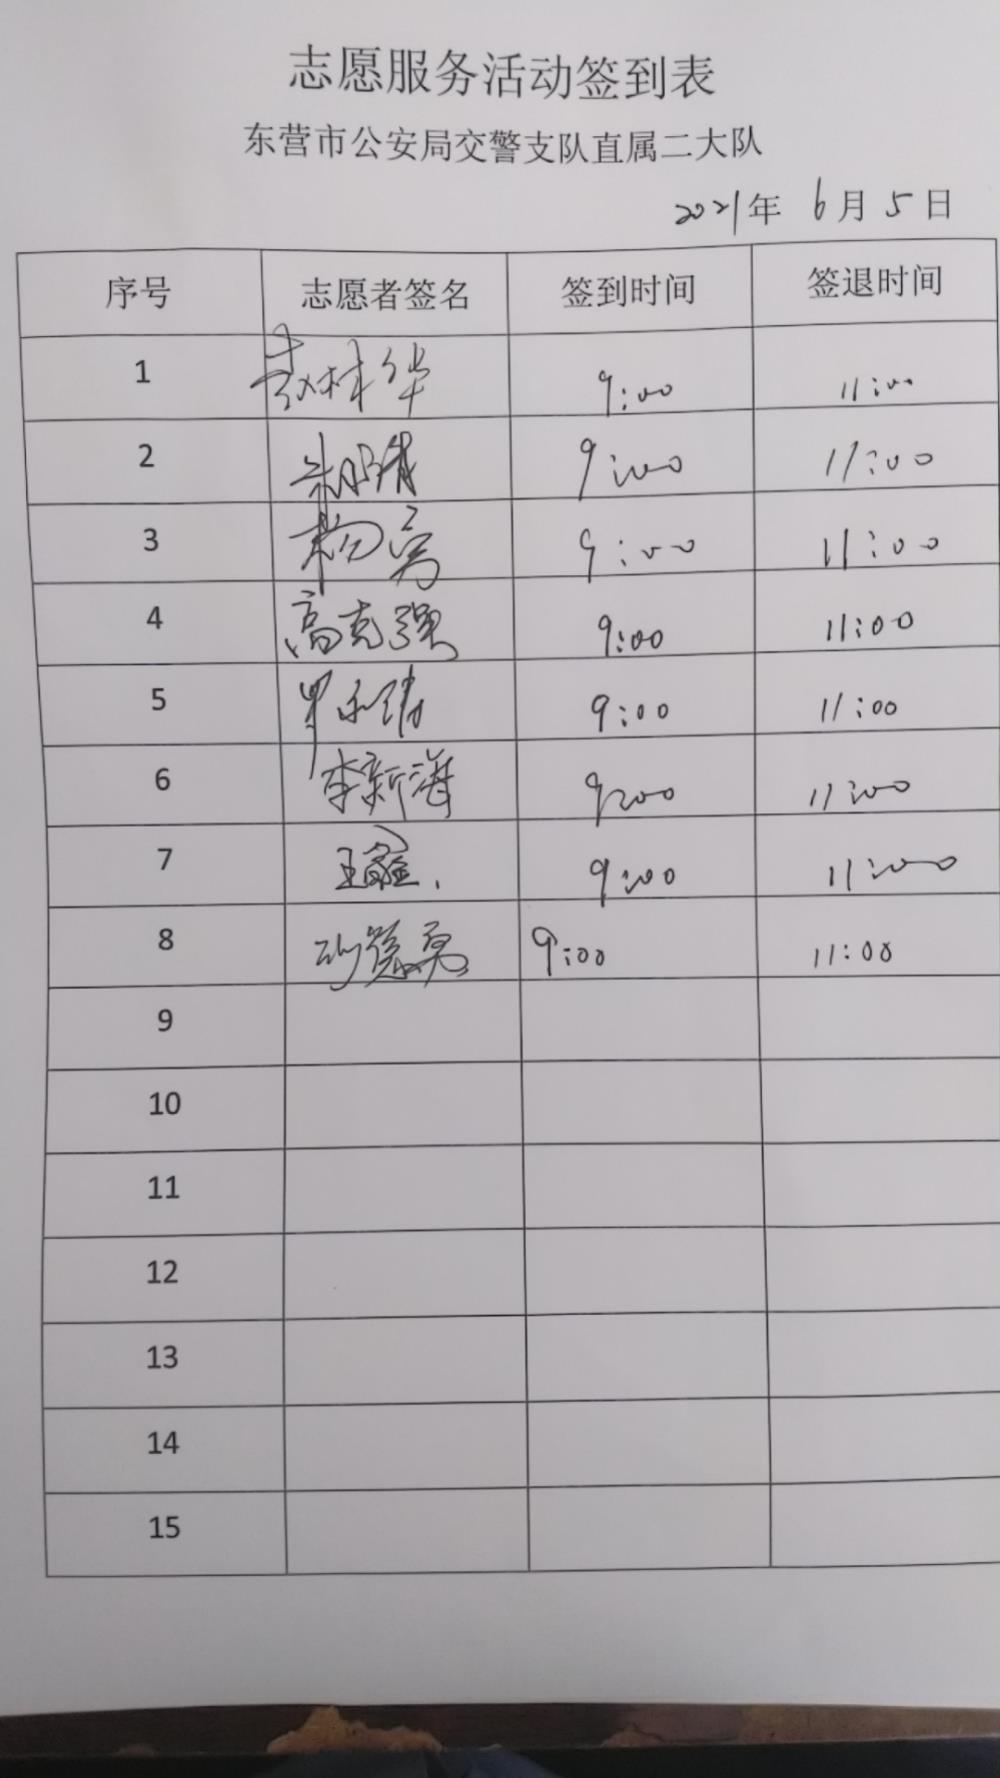 志愿服务活动签到表
东营市公安局交警支队直属二大队
2021年 6月5日
序号 志愿者签名 签到时间 签退时间
1 9:00 11:00
2 9:00 11:00
3 杨 9:00 11:00
4 高克强 9:00 11:00
5 9:00 11:00
6 李新海 9:00 11:00
7 王 9:00 11:00
8 9:00 11:00
9
10
11
12
13
14
15